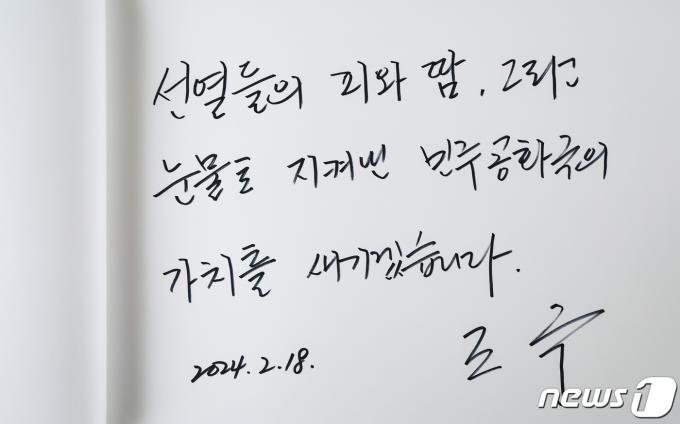 선열들의 피와 땀, 그리고
눈물로 지켜낸 민주공화국의
가치를 새기겠습니다.
2024. 2. 18. 조 국
news1